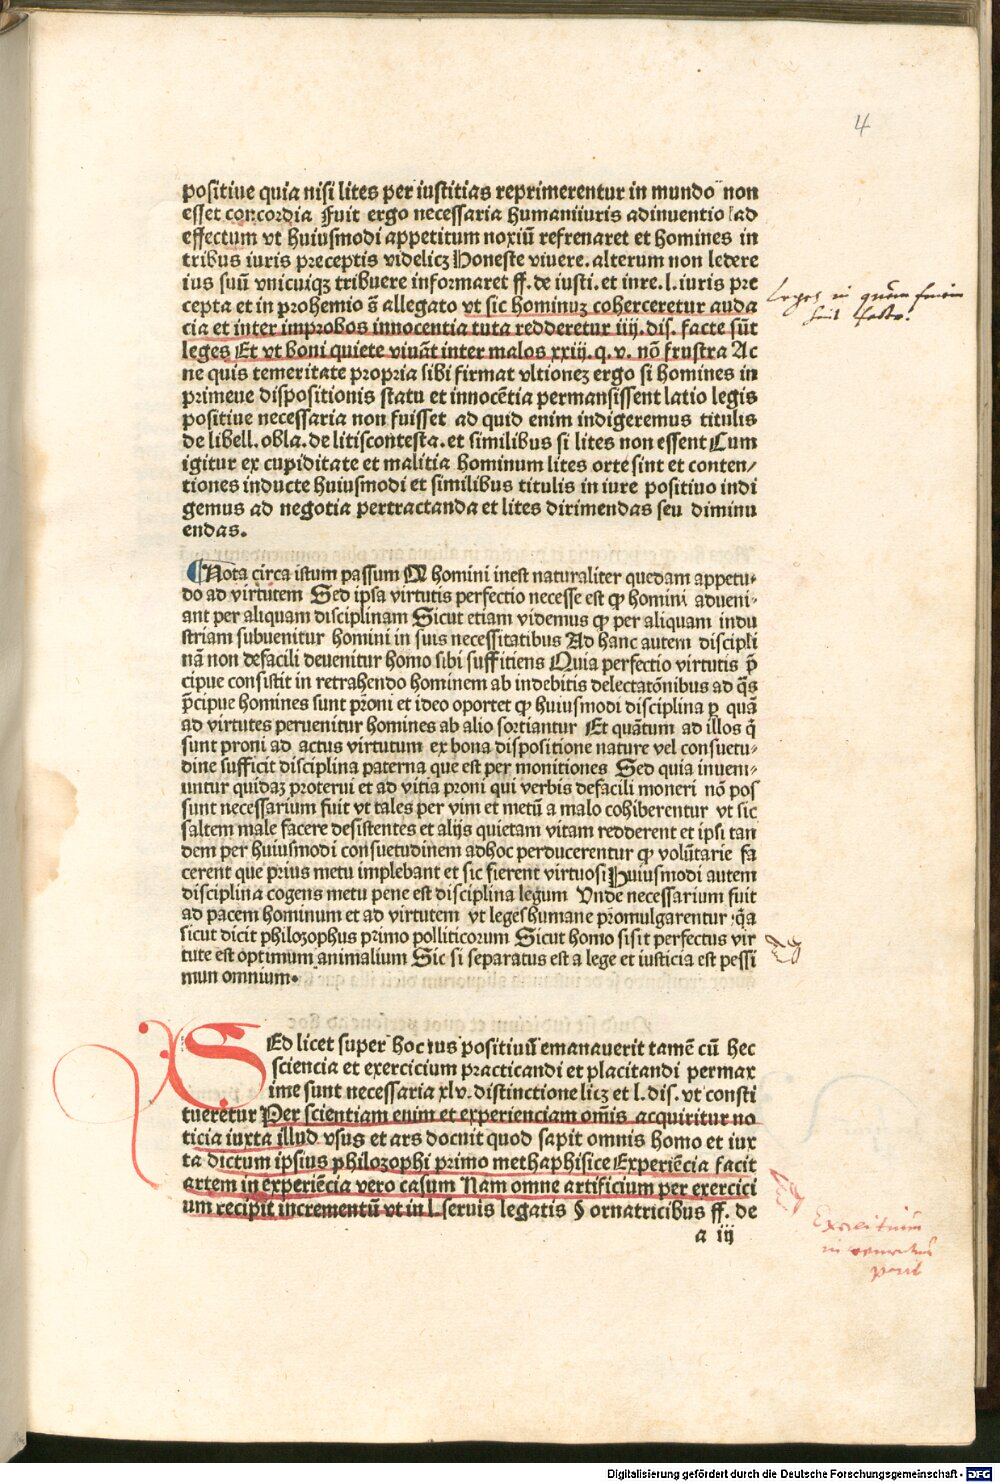 4
positiue quia nisi lites per iustitias reprimerentur in mundo non
esset concordia Fuit ergo necessaria humaniiuris adinuentio ad
effectum vt huiusmodi appetitum noxiū refrenaret et homines in
tribus iuris preceptis videlicꝫ Honeste viuere. alterum non ledere
ius suū vnicuiqꝫ tribuere informaret ff. de iusti. et inre. l. iuris pre
cepta et in prohemio s̄ allegato vt sic hominuꝫ coherceretur auda
cia et inter improbos innocentia tuta redderetur iiij. dis. facte sūt
leges Et vt boni quiete viuāt inter malos xxiij. q. v. nō frustra Ac
ne quis temeritate propria sibi firmat vltioneꝫ ergo si homines in
primeue dispositionis statu et innocētia permansissent latio legis
positiue necessaria non fuisset ad quid enim indigeremus titulis
de libell. obla. de litiscontesta. et similibus si lites non essent Cum
igitur ex cupiditate et malitia hominum lites orte sint et conten/
tiones inducte huiusmodi et similibus titulis in iure positiuo indi
gemus ad negotia pertractanda et lites dirimendas seu diminu
endas.
Leges in quem finem
sint facte.
Nota circa istum passum Q homini inest naturaliter quedam appetu⸗
do ad virtutem Sed ipsa virtutis perfectio necesse est ꝙ homini adueni⸗
ant per aliquam disciplinam Sicut etiam videmus ꝙ per aliquam indu
striam subuenitur homini in suis necessitatibus Ad hanc autem discipli
nā non defacili deuenitur homo sibi suffitiens Quia perfectio virtutis p̄
cipue consistit in retrahendo hominem ab indebitis delectatōnibus ad q̄s
p̄cipue homines sunt prōni et ideo oportet ꝙ huiusmodi disciplina ꝑ quā
ad virtutes peruenitur homines ab alio sortiantur Et quātum ad illos q̄
sunt proni ad actus virtutum ex bona dispositione nature vel consuetu⸗
dine sufficit disciplina paterna que est per monitiones Sed quia inueni⸗
untur quidaꝫ proterui et ad vitia proni qui verbis defacili moneri nō pos
sunt necessarium fuit vt tales per vim et metū a malo cohiberentur vt sic
saltem male facere desistentes et alijs quietam vitam redderent et ipsi tan
dem per huiusmodi consuetudinem adhoc perducerentur ꝙ volūtarie fa
cerent que prius metu implebant et sic fierent virtuosi Huiusmodi autem
disciplina cogens metu pene est disciplina legum Vnde necessarium fuit
ad pacem hominum et ad virtutem vt leges humane promulgarentur q̄a
sicut dicit philozophus primo polliticorum Sicut homo sisit perfectus vir
tute est optimum animalium Sic si separatus est a lege et iusticia est pessi
mun omnium.
SEd licet super hoc ius positiuū emanauerit tamē cū hec
sciencia et exercicium practicandi et placitandi permax
ime sunt necessaria xlv. distinctione licꝫ et l. dis. vt consti
tueretur Per scientiam enim et experienciam om̄is acquiritur no
ticia iuxta illud vsus et ars docuit quod sapit omnis homo et iux
ta dictum ipsius philozophi primo methaphisice Experiēcia facit
artem in experiēcia vero casum Nam omne artificium per exercici
um recipit incrementū vt in l. seruis legatis § ornatricibus ff. de
a iij
Exercitium
parit
Digitalisierung gefördert durch die Deutsche Forschungsgemeinschaft - DFG